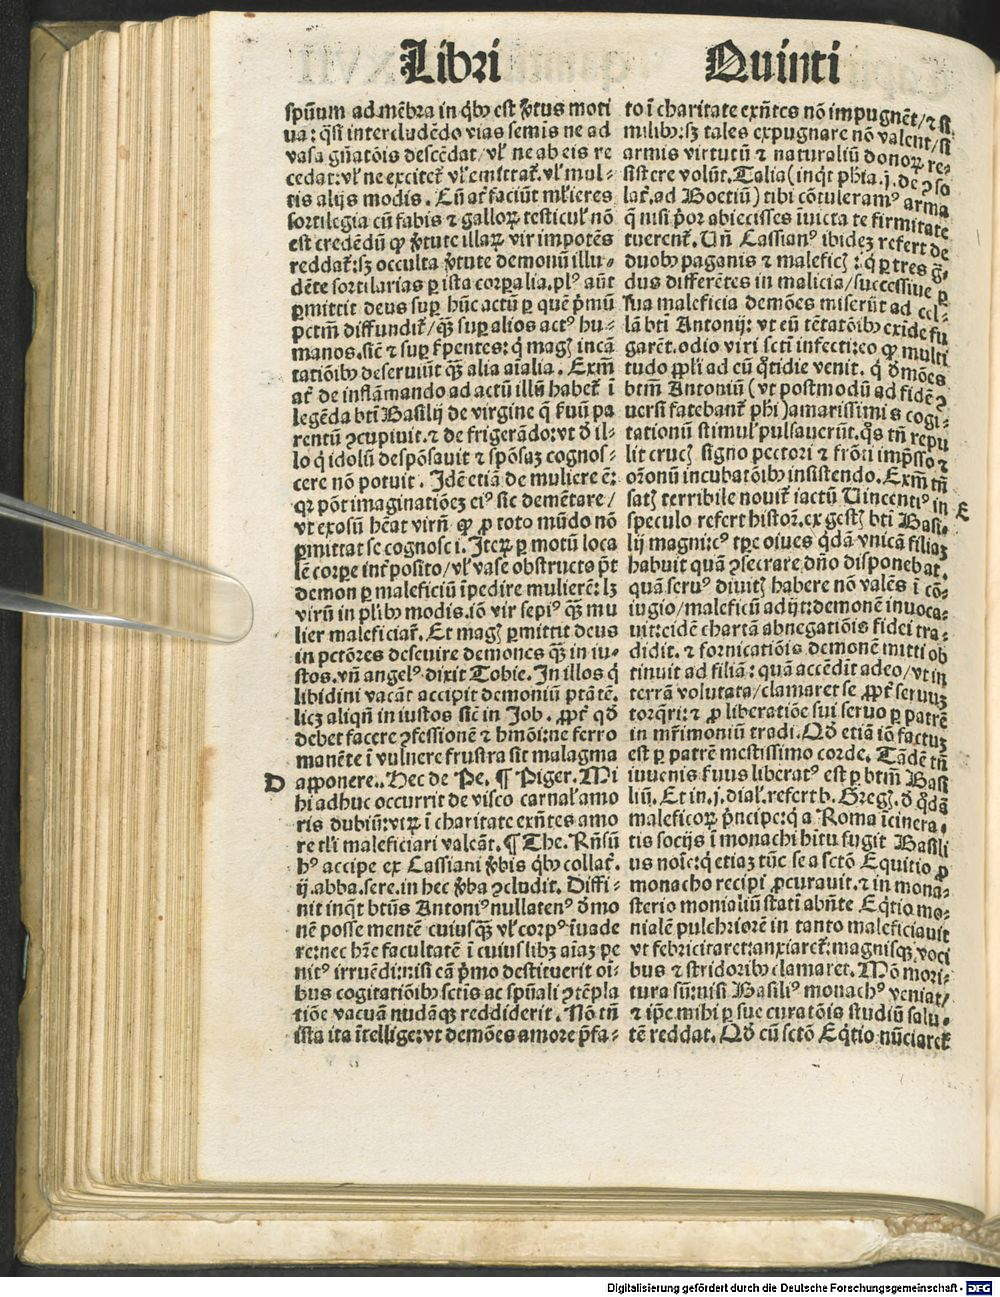 Libri Quinti
spũum ad mẽbra in qͥbꝰ est ṽtus moti
ua: qͣsi intercludẽdo vias semĩs ne ad
vasa gñatõis descẽdat/vl̕ ne ab eis re
cedat: vl̕ ne excitet᷑ vl̕ emittat᷑. vl̕ mul-
tis alijs modis. Cũ at᷑ faciũt ml̕ieres
sortilegia cũ fabis ⁊ galloꝝ testicul̕ nõ
est credẽdũ ꝙ ṽtute illaꝝ vir impotẽs
reddat᷑: sꝫ occulta ṽtute demonũ illu-
dẽte sortilarias ꝑ ista corꝑalia. plꝰ aũt
ꝑmittit deus suꝑ hũc actũ ꝑ quẽ pͥmũ
pctm̃ diffundit᷑/qͣꝫ suꝑ alios actꝰ hu-
manos. sic̃ ⁊ suꝑ ẜpentes: qͥ magꝭ incã
tatiõibꝰ deseruiũt qͣꝫ alia aĩalia. Exm̃
at᷑ de inflãmando ad actũ illũ habet᷑ ĩ
legẽda bt̃i Basilij de virgine q̃ ẜuũ pa
rentũ ꝯcupiuit. ⁊ de frigerãdo: vt ð il-
lo qͥ idolũ despõsauit ⁊ spõsaꝫ cognos-
cere nõ potuit. Idẽ etiã de muliere ẽ:
qꝛ põt imaginatiõeꝫ eiꝰ sic demẽtare/
vt exosũ hẽat virũ ꝙ ꝓ toto mũdo nõ
ꝑmittat se cognosci. Iteꝝ ꝑ motũ loca
lẽ corꝑe int᷑posito/vl̕ vase obstructo põt
demon ꝑ maleficiũ ĩpedire mulierẽ: lꝫ
virũ in pl̕ibꝰ modis. iõ vir sepiꝰ qͣꝫ mu
lier maleficiat᷑. Et magꝭ ꝑmittit deus
in pctõres deseuire demones qͣꝫ in iu-
stos. vñ angelꝰ dixit Tobie. In illos qͥ
libidini vacãt accipit demoniũ ptãtẽ.
licꝫ aliqñ in iustos sic̃ in Job. ꝓpt᷑ qð
debet facere ꝯfessionẽ ⁊ hmõi: ne ferro
manẽte ĩ vulnere frustra sit malagma
D apponere.. Hec de Pe. ¶ Piger. Mi
hi adhuc occurrit de visco carnal̕ amo
ris dubiũ: vtꝝ ĩ charitate exñtes amo
re tl̕i maleficiari valeãt. ¶ The. Rñsũ
hꝰ accipe ex Cassiani ṽbis qͥbꝰ collat᷑.
ij. abba. sere. in hec ṽba ꝯcludit. Diffi-
nit inqͥt bt̃us Antoniꝰ nullatenꝰ ðmo
nẽ posse mentẽ cuiusqͣꝫ vl̕ corpꝰ ĩuade
re: nec hr̃e facultatẽ ĩ cuiuslibꝫ aĩaꝫ pe
nitꝰ irruẽdi: nisi eã pͥmo destituerit oĩ-
bus cogitatiõibꝰ sctĩs ac spũali ꝯtẽpla
tiõe vacuã nudãqꝫ reddiderit. Nõ tñ
ista ita ĩtellige: vt demões amore pͥfa-
to ĩ charitate exñtes nõ impugnẽt/⁊ si
milibꝰ: sꝫ tales expugnare nõ valent/si
armis virtutũ ⁊ naturaliũ donoꝝ re-
sistere volũt. Talia (inqͥt phĩa. j. de ꝯso
lat᷑. ad Boetiũ) tibi cõtuleramꝰ arma
q̃ nisi pͥor abiecisses ĩuicta te firmitate
tuerent᷑. Vñ Cassianꝰ ibideꝫ refert de
duobꝰ paganis ⁊ maleficꝭ: qͥ ꝑ tres gͣ-
dus differẽtes in malicia/successiue ꝑ
sua maleficia demões miserũt ad cel-
lã bt̃i Antonij: vt eũ tẽtatõibꝰ exĩde fu
garẽt. odio viri sctĩ infecti: eo ꝙ multi
tudo ppl̕i ad eũ qͦtidie venit. qͥ ðmões
bt̃m Antoniũ (vt postmodũ ad fidẽ ꝯ
uersi fatebant᷑ phĩ) amarissimis cogi-
tationũ stimul̕ pulsauerũt. qͦs tñ repu
lit crucꝭ signo pectori ⁊ frõti imp̃sso ⁊
orõnũ incubatõibꝰ insistendo. Exm̃ tñ
E satꝭ terribile nouit᷑ iactũ Vincentiꝰ in
speculo refert histor̃. ex gestꝭ bt̃i Basi-
lij magni: cꝰ tꝑe diues qͥdã vnicã filiaꝫ
habuit quã ꝯsecrare dño disponebat.
quã seruꝰ diuitꝭ habere nõ valẽs ĩ cõ-
iugio/maleficũ adijt: demonẽ inuoca-
uit: eidẽ chartã abnegatiõis fidei tra-
didit. ⁊ fornicatiõis demonẽ mitti ob
tinuit ad filiã: quã accẽdit adeo/vt in
terrã volutata/clamaret se ꝓpt᷑ seruuꝫ
torqͣri: ⁊ ꝓ liberatiõe sui seruo ꝑ patrẽ
in mr̃imoniũ tradi. Qð etiã iõ factuꝫ
est ꝑ patrẽ mestissimo corde. Tãdẽ tñ
iuuenis ẜuus liberatꝰ est ꝑ bt̃m Basi
liũ. Et in. j. dial̕. refert b. Gregꝭ. ð qͦdã
maleficoꝝ pͥncipe: qͥ a Roma ĩcinera-
tis socijs ĩ monachi hĩtu fugit Basili
us noĩe: qͥ etiaꝫ tũc se a sctõ Equitio ꝓ
monacho recipi ꝓcurauit. ⁊ in mona-
sterio monialiũ statĩ abñte Eqͥtio mo-
nialẽ pulchriorẽ in tanto maleficiauit
vt febricitaret: anxiaret᷑: magnisqꝫ voci
bus ⁊ stridoribꝰ clamaret. Mõ mori-
tura sũ: nisi Basiliꝰ monachꝰ veniat/
⁊ ip̃e mihi ꝑ sue curatõis studiũ salu-
tẽ reddat. Qð cũ sctõ Eqͥtio nũciaret᷑
Digitalisierung gefördert durch die Deutsche Forschungsgemeinschaft - DFG